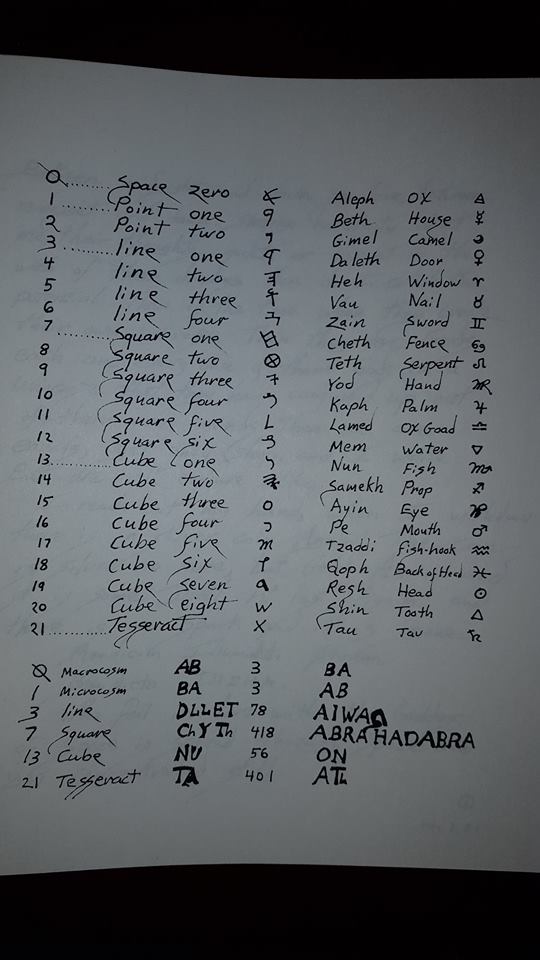 0........ Space zero Aleph Ox △
1........ Point one 9 Beth House ☿
2 Point two Gimel Camel ☽
3........ line one Daleth Door ♀
4 line two Heh Window ♈
5 line three Vau Nail ♉
6 line four Zain Sword ♊
7........ Square one Cheth Fence ♋
8 Square two ⊗ Teth Serpent ♌
9 Square three Yod Hand ♍
10 Square four Kaph Palm ♃
11 Square five L Lamed Ox Goad ♎
12 Square six Mem Water ▽
13........ Cube one Nun Fish ♏
14 Cube two Samekh Prop ♐
15 Cube three o Ayin Eye ♑
16 Cube four Pe Mouth ♂
17 Cube five Tzaddi fish-hook ♒
18 Cube six Qoph Back of Head ♓
19 Cube seven Resh Head ☉
20 Cube eight W Shin Tooth △
21........ Tesseract X Tau Tav ♄
0 Macrocosm AB 3 BA
1 Microcosm BA 3 AB
3 line DLLET 78 AIWAS
7 Square ChYTh 418 ABRAHADABRA
13 Cube NU 56 ON
21 Tesseract TA 401 ATh